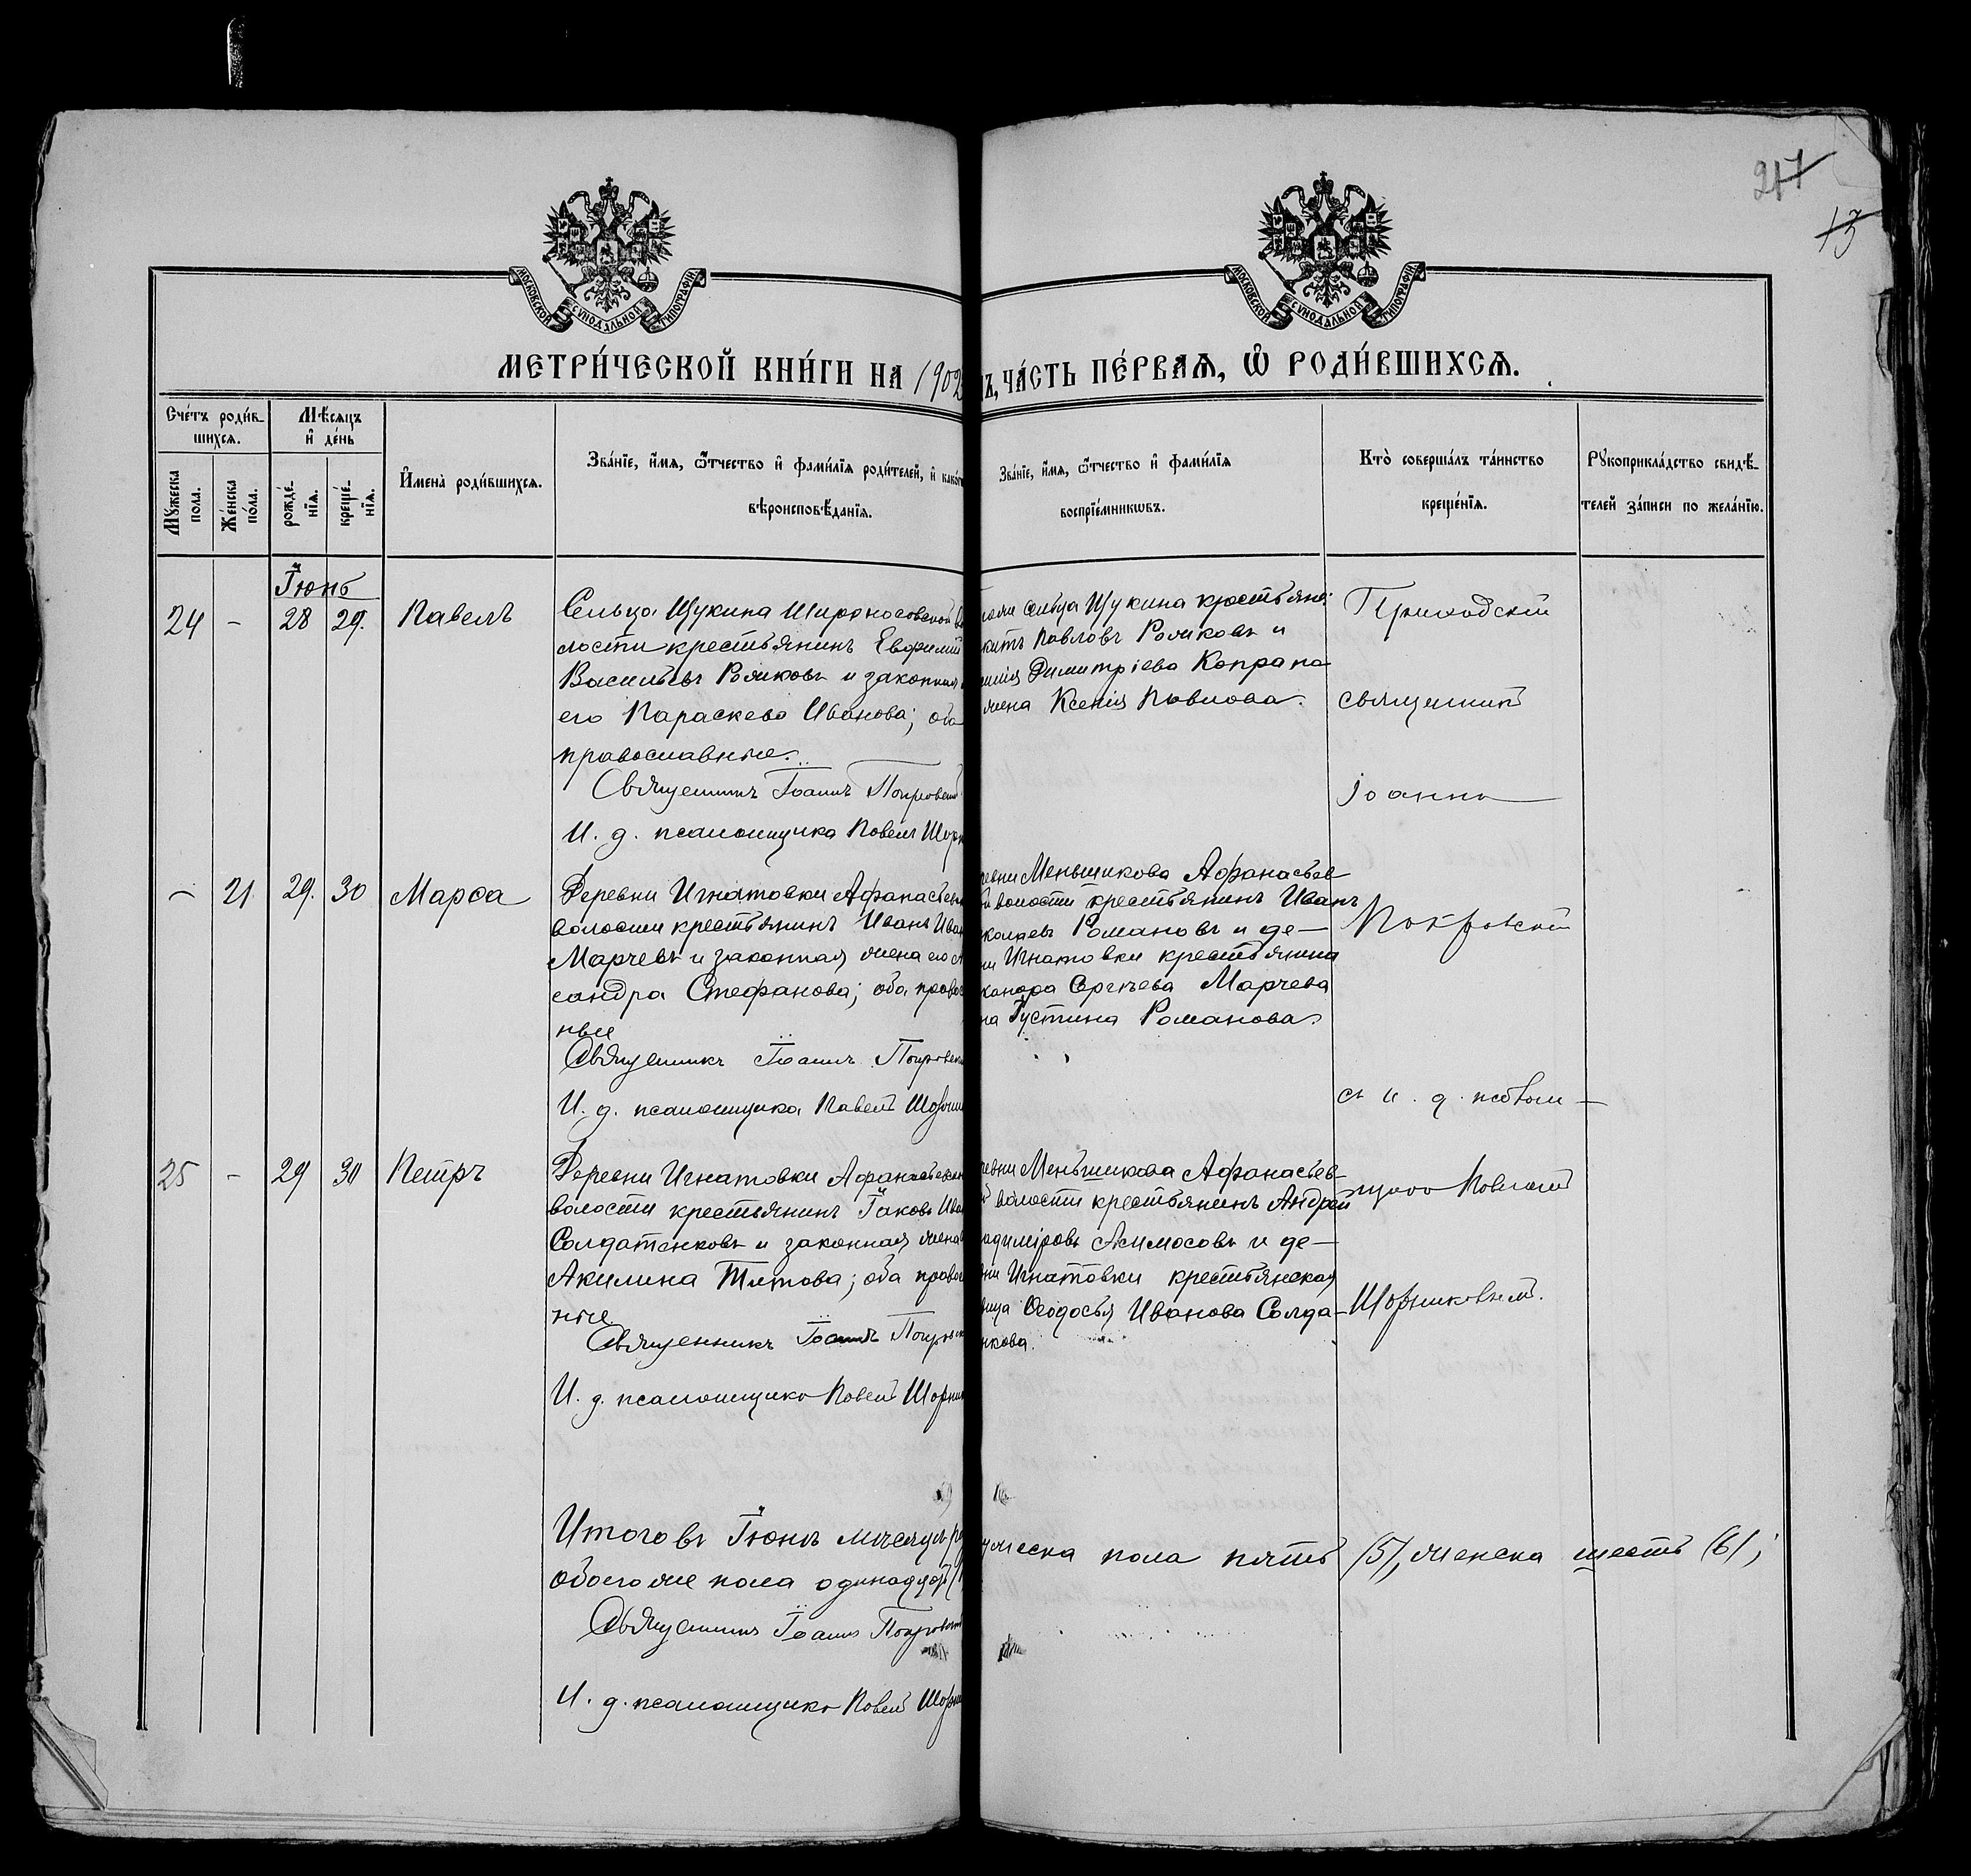 217
13
МОСКОВСКОЙ СѴНОДАЛЬНОЙ ТИПОГРАФІИ
МОСКОВСКОЙ СѴНОДАЛЬНОЙ ТИПОГРАФІИ
МЕТРИ́ЧЕСКОЙ КНИ́ГИ НА 1902
Ъ, ЧА́СТЬ ПЕ́РВАѦ, Ѡ҆ РОДИ́ВШИХСѦ.
Сче́тъ роди́в-
шихсѧ.
Мꙋ́жеска
пола.
Же́нска
по́ла.
Мѣ́сѧцъ
и҆ де́нь
рожде́-
нїѧ.
креще́-
нїѧ.
И҆мена̀ роди́вшихсѧ.
Зва́нїе, и҆́мѧ, ѻ҆́тчество и҆ фами́лїѧ роди́телей, и҆ како́г
вѣроисповѣ́данїѧ.
Зва́нїе, и҆́мѧ, ѻ҆́тчество и҆ фами́лїѧ
воспрїе́мникѡвъ.
Кто̀ соверша́лъ та́инство
креще́нїѧ.
Рꙋкоприкла́дство свидѣ́-
телей за́писи по жела́нїю.
Іюнь
24 - 28 29. Павелъ
Сельца Щукина Широносовской во
лости крестьянинъ Евфимій
Васильевъ Рожковъ и законная
его Параскева Иванова; оба
православные.
Священникъ Іоаннъ Покровскі
И. д. псаломщика Павелъ Шорн
сельца Щукина крестьяни
Павловъ Рожковъ и
Димитріева Капрала
жена Ксенія Павлова.
Приходскій
священникъ
Іоаннъ
- 21. 29. 30 Марѳа
Деревни Игнатовки Афанасьев
волости крестьянинъ Иванъ Иван
Марчевъ и законная жена его А
сандра Стефанова; оба право
ные
Священникъ Іоаннъ Покровскі
И. д. псаломщика Павелъ Шорни
евни Меньшикова Афанасьев
й волости крестьянинъ Иванъ
колаевъ Романовъ и де-
ни Игнатовки крестьянина
Сергѣева Марчева
на Іустина Романова.
Покровскій
съ и. д. псалом-
25 - 29 30 Петръ
Деревни Игнатовки Афанасьевск
волости крестьянинъ Іаковъ Ива
Солдатенковъ и законная жена
Акилина Титова; оба право
ные.
Священникъ Іоаннъ Покровск
И. д. псаломщика Павелъ Шорни
евни Меньшикова Афанасьев-
й волости крестьянинъ Андрей
адиміровъ и де-
ни Игнатовки крестьянская
вица Ѳеодосья Иванова Солда-
нкова.
щикомъ Павломъ
Шорниковымъ.
Итого въ Іюнѣ мѣсяцѣ ро
обоего же пола одинадцать (1
ужеска пола пять (5), женска шесть (6);
Священникъ Іоаннъ Покровскі
И. д. псаломщика Павелъ Шорни